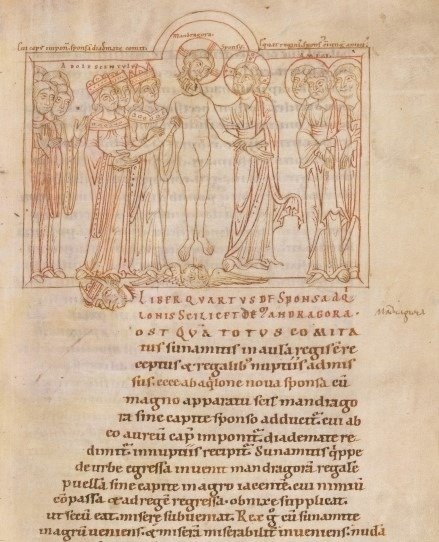 Mandragora.
Cui capu imponit sponsus diademate comit
sponsus
ADOLESCENTULE
AMICI
LIBER QVARTVS DE SPONSA AQI
LONIS SCILICET DE MANDRAGORA.
Mandragora
OST QVĀ TOTUS COMITA
tus sunamitis in aulā regis ē re
ceptus & regalib; nuptiis admis
sus. ecce ab aqlone noua sponsa cū
magno apparatu scil mandrago
ra sine capite sponso adducit̄. cui ab
eo aureū cap̄ imponit̄. diademate re
dimit̄. in nuptiis recipit̄. Sunamitis q̄ppe
de urbe egressa inuenit mandragorā regale
puellā sine capite in agro iacente. cui nimiū
cōpassa & ad regē regressa. obnixe supplicat.
ut secū eat. misere subueniat. Rex g cū sunamite
in agrū ueniens. & miserā miserabilit inueniens. nudā